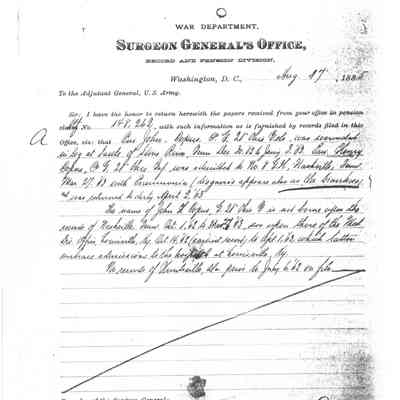 WAR DEPARTMENT,
SURGEON GENERAL'S OFFICE,
RECORD AND PENSION DIVISION,
Washington, D. C., Aug 17, 188
To the Adjutant General, U.S. Army.
Sir: I have the honor to return herewith the papers received from your office in pension
No. 148.269, with such information as is furnished by records filed in this
A
Office, viz: that John Copus, G. 28 Ohio was wounded
in leg at battle of Stone River Tenn Dec 30 & Jany 2. 63. Henry
Copus, G. 28 Ohio was admitted to No. 8 G.H. Nashville, Tenn
Mar 27/63 with (diagnosis appears also as
was returned to duty April 2. 63
The name of John F. Copus, G. 28 Ohio is not borne upon the
records of Nashville Tenn Oct 1. 62 to 63, nor upon those of the Med
Dir Office, Louisville, Ky. Oct 14. 62 (earliest record) to Apl 1. 63, which latter
embrace admissions to the hospitals at Louisville, Ky.
No records of Huntsville, Ala prior to July 6. 62 on file